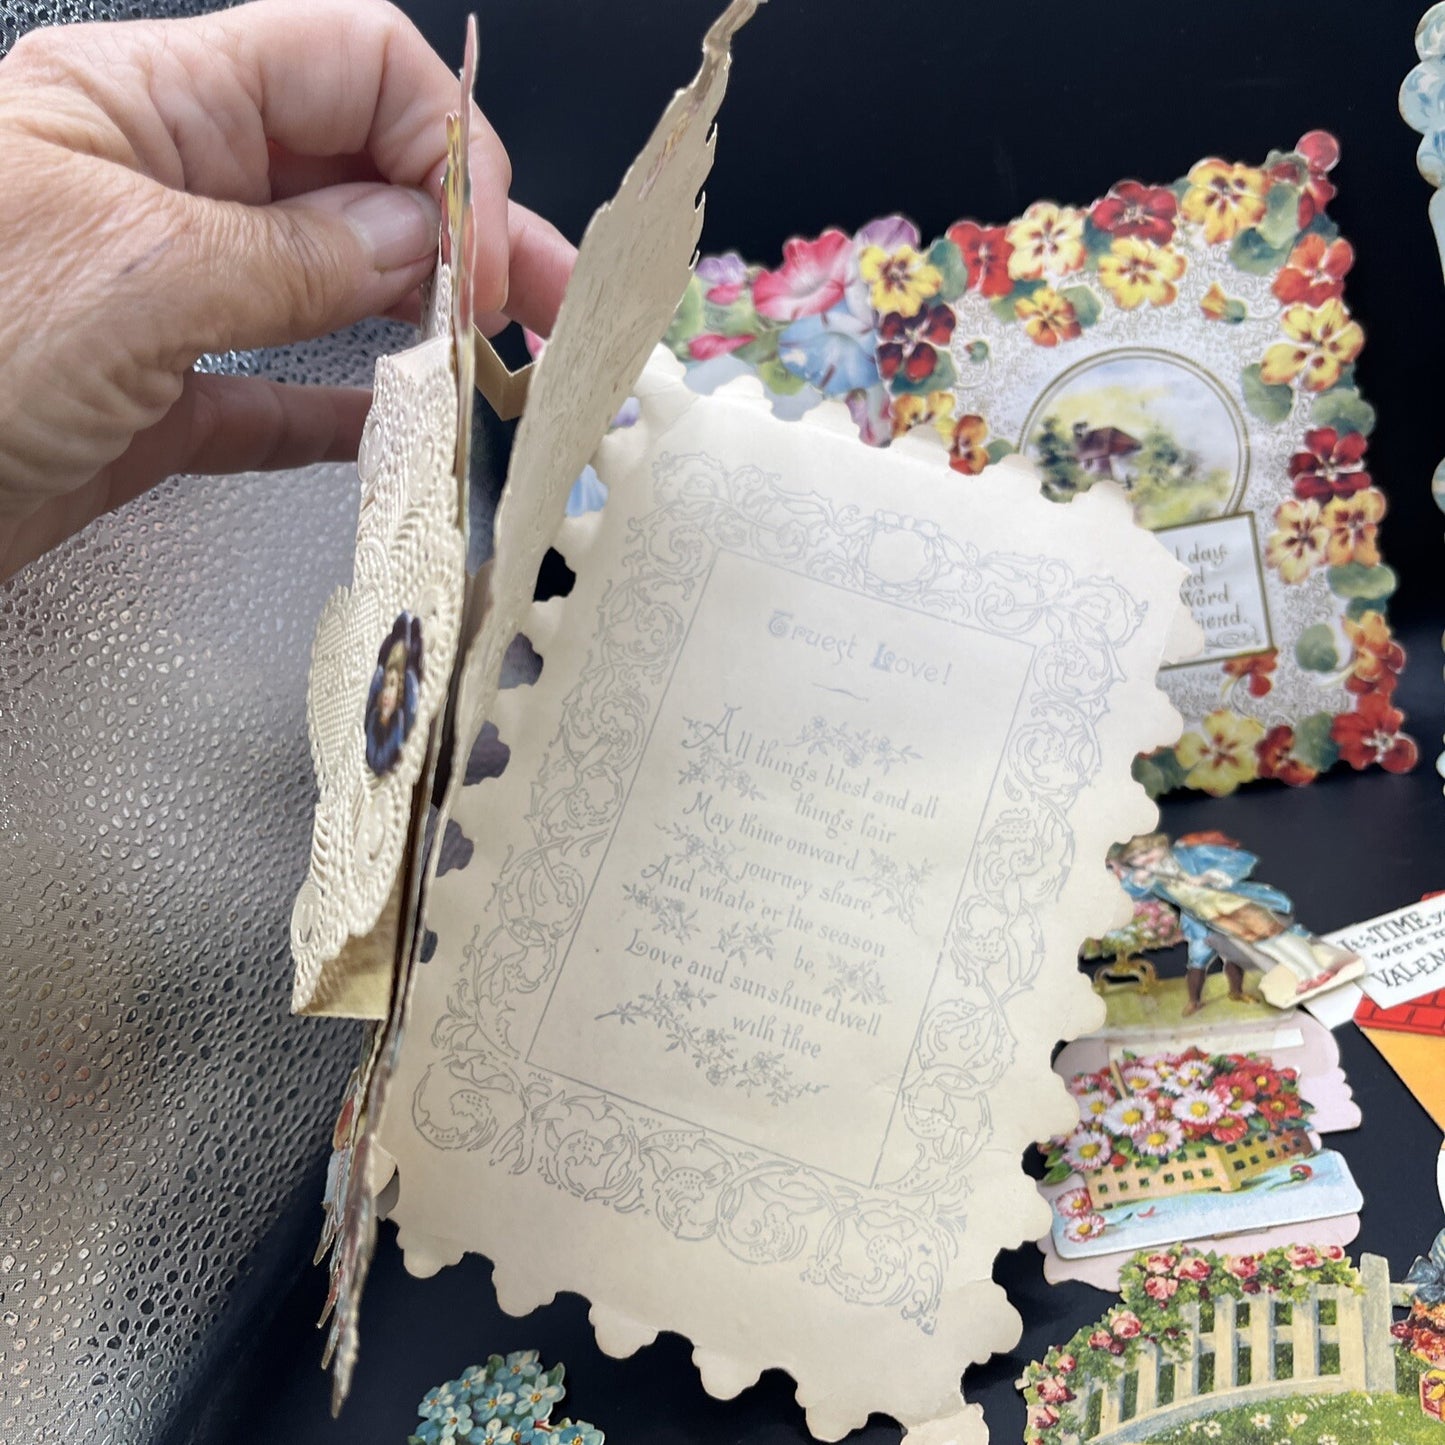 Truest Love!
All things blest and all
things fair
May thine onward
journey share,
And whate'er the season
be,
Love and sunshine dwell
with thee
day
Word
friend.
It's TIME
were